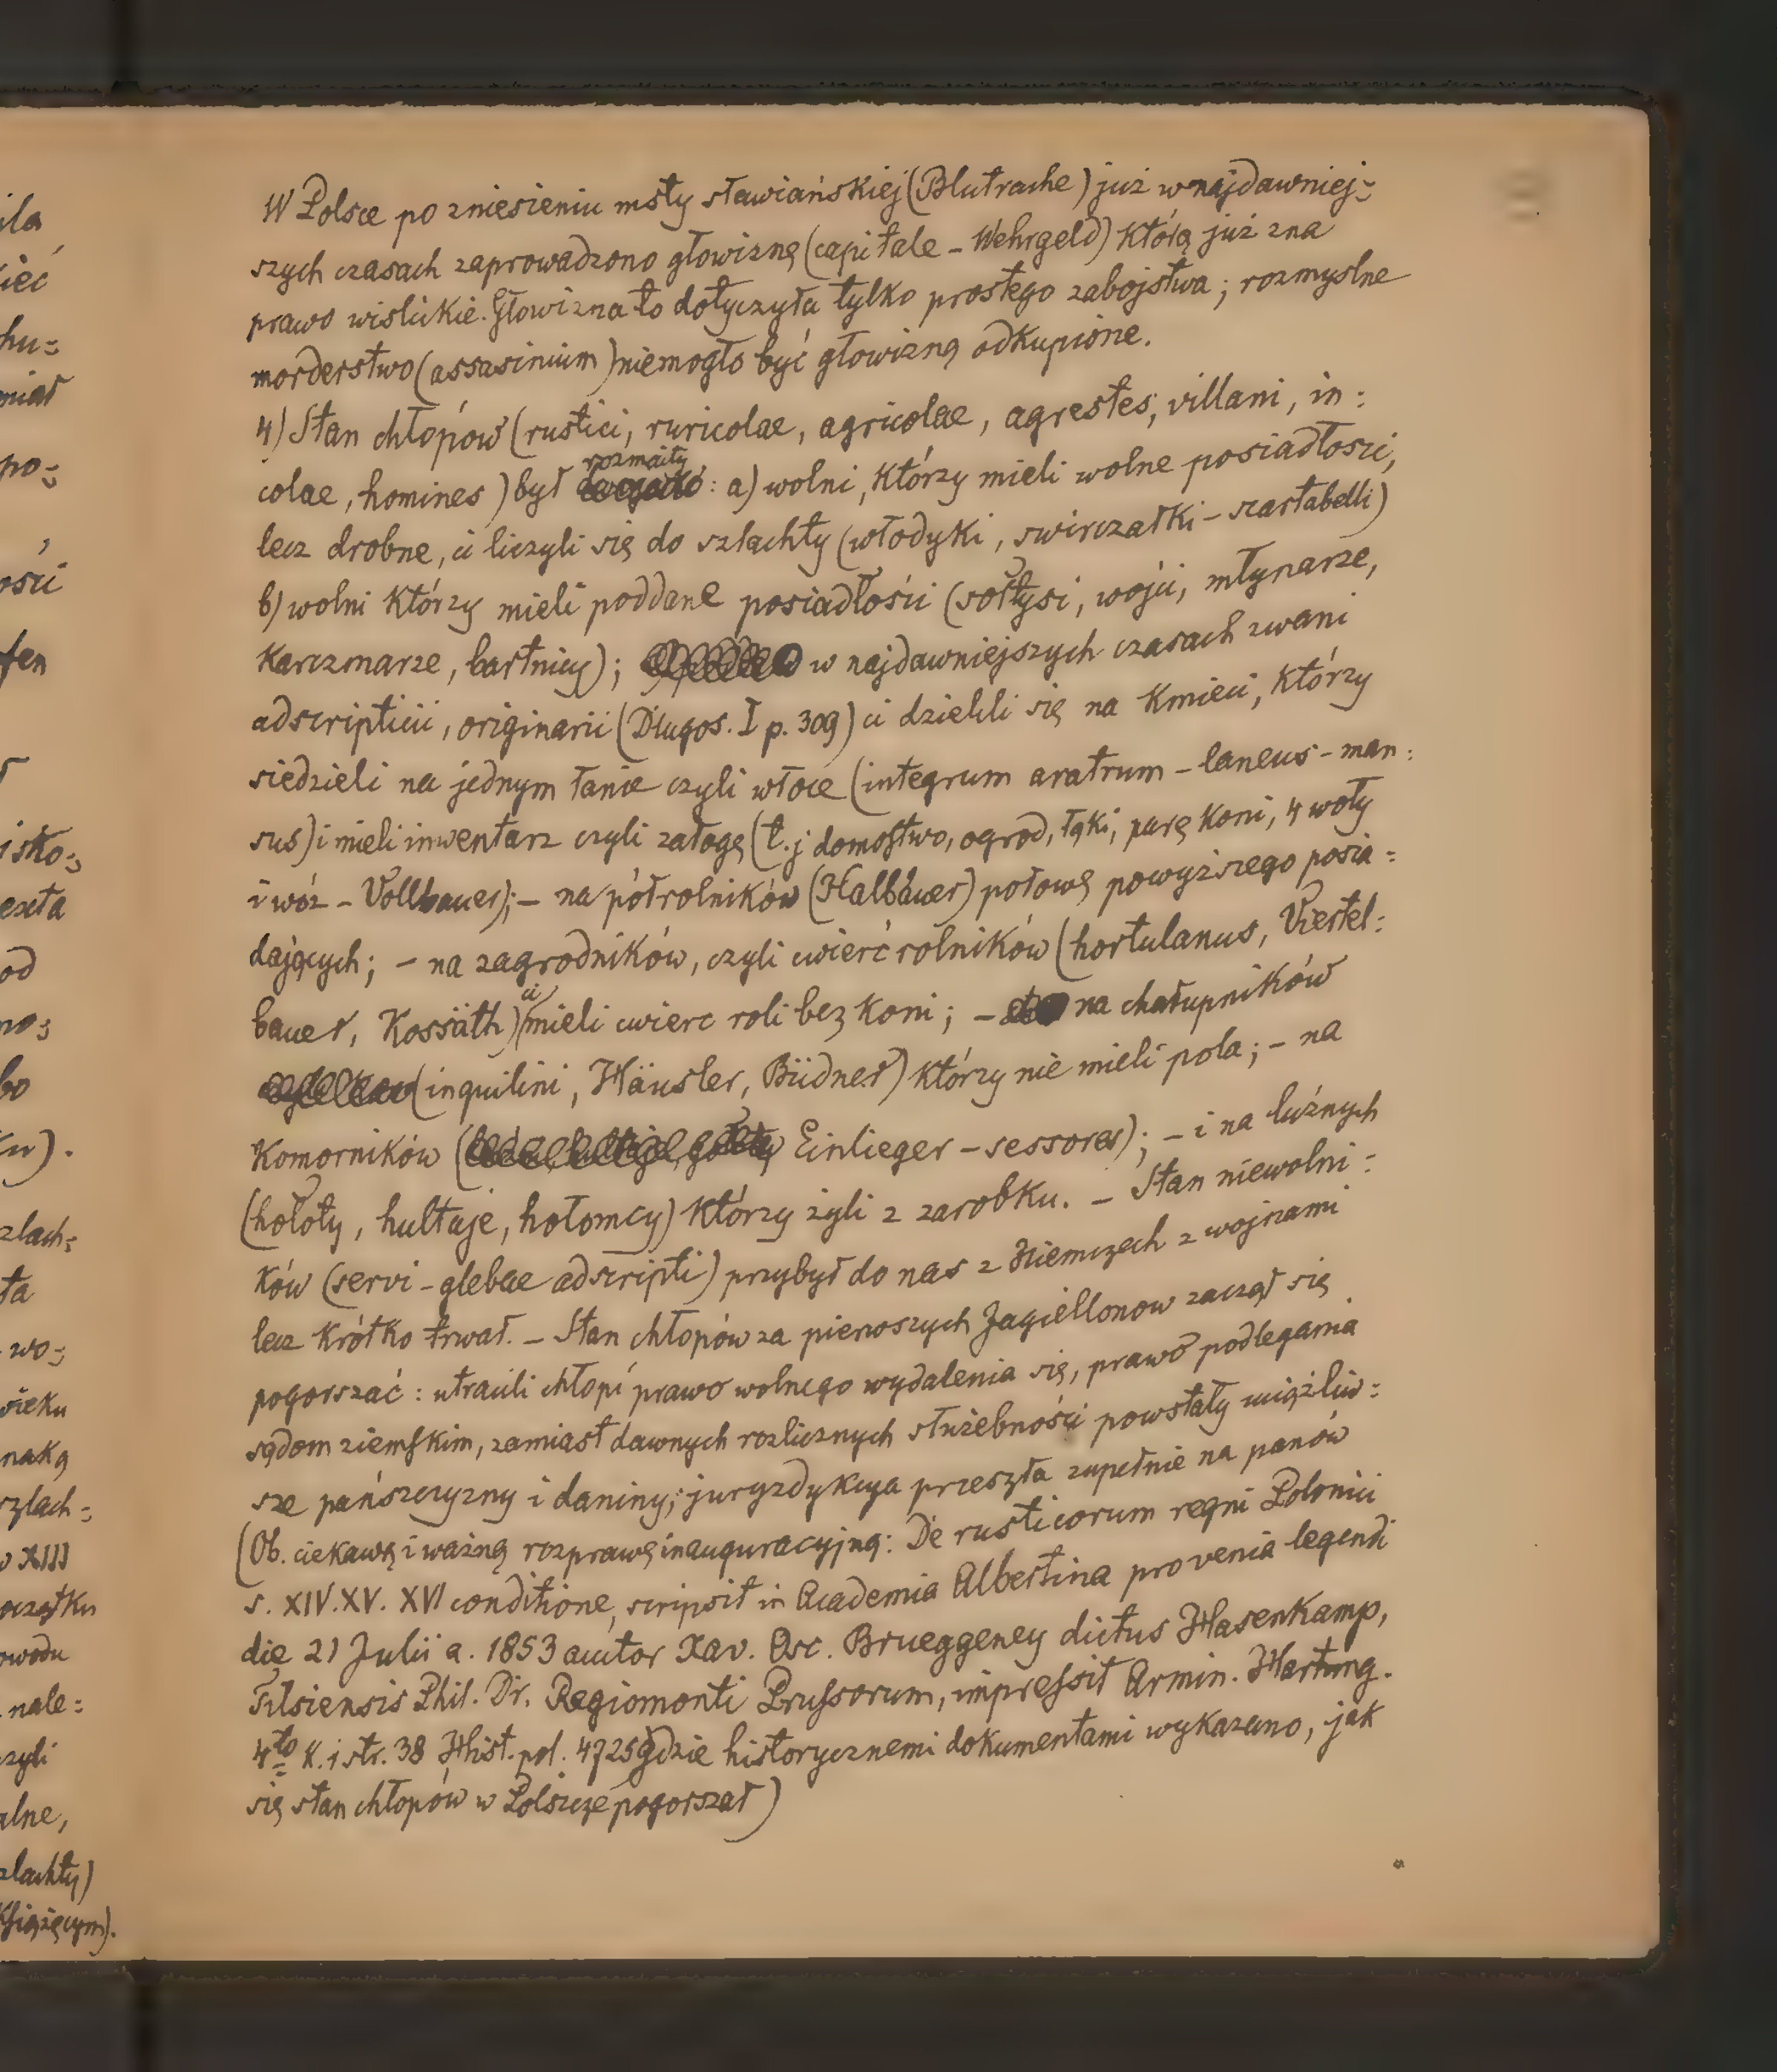 W Polsce po zniesieniu msty sławiańskiej (Blutrache) już w najdawniej=
szych czasach zaprowadzono głowiznę (capitale – Wehrgeld) którą już zna
prawo wislickie. Głowizna to dotyczyła tylko prostego zabojstwa; rozmyslne
morderstwo (assasinium) niemogło być głowizną odkupione.
4) Stan chłopów (rustici, ruricolae, agricolae, agrestes, villani, in=
colae, homines) był rozmaity: a) wolni, którzy mieli wolne posiadłosci,
lecz drobne, ci liczyli się do szlachty (włodyki, swirczałki – scartabelli)
b) wolni którzy mieli poddane posiadłości (sołtysi, wójci, młynarze,
karczmarze, bartnicy); w najdawniejszych czasach zwani
adscripticii, originarii (Długos. I p. 309) ci dzielili się na Kmieci, którzy
siedzieli na jednym łanie czyli włoce (integrum aratrum – laneus – man=
sus) i mieli inwentarz czyli załogę (t.j domostwo, ogrod, łąki, parę koni, 4 woły
i wóz – Vollbauer); – na półrolników (Halbbauer) połowę powyższego posia=
dających; – na zagrodników, czyli cwierć rolników (hortulanus, Viertel=
bauer, Kossäth) ci mieli cwierc roli bez koni; – na chałupników
(inquilini, Häusler, Büdner) którzy nie mieli pola; – na
Komorników (Einlieger – sessores); – i na luźnych
(hołoty, hultaje, hołomcy) którzy żyli z zarobku. – Stan niewolni=
ków (servi – glebae adscripti) przybył do nas z Niemczech z wojnami
lecz krótko trwał. – Stan chłopów za pierwszych Jagiellonow zaczął się
pogorszać: utracili chłopi prawo wolnego wydalenia się, prawo podlegania
sądom ziemskim, zamiast dawnych rozlicznych służebności powstały uciążliw=
sze pańszczyzny i daniny; juryzdykcya przeszła zupełnie na panów
(Ob. ciekawą i ważną rozprawę inauguracyjną: De rusticorum regni Polonici
s. XIV. XV. XVI conditione, scripsit in Academia Albertina pro venia legendi
die 21 Julii a. 1853 auctor Xav. Osc. Brueggeney dictus Hasenkamp,
Tilsiensis Phil. Dr. Regiomonti Prussorum, impressit Armin. Hartung.
4to k. i str. 38 Hist. pol. 4725 gdzie historycznemi dokumentami wykazano, jak
się stan chłopów w Polszcze pogorszał)